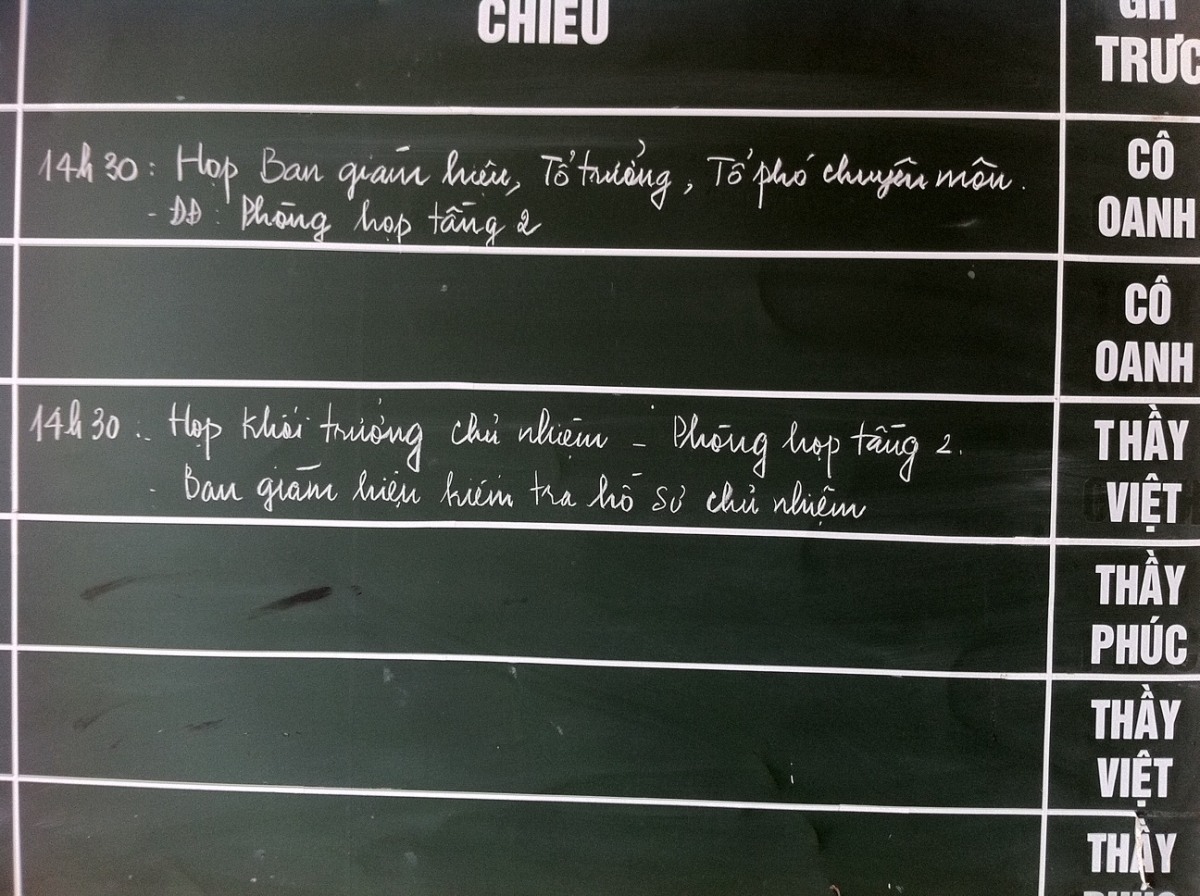 CHIỀU
GH
TRỰC
14h30: Họp Ban giám hiệu, Tổ trưởng, Tổ phó chuyên môn.
- DĐ: Phòng họp tầng 2
CÔ
OANH
CÔ
OANH
14h30: Họp khối trưởng chủ nhiệm - Phòng họp tầng 2.
- Ban giám hiệu kiểm tra hồ sơ chủ nhiệm
THẦY
VIỆT
THẦY
PHÚC
THẦY
VIỆT
THẦY